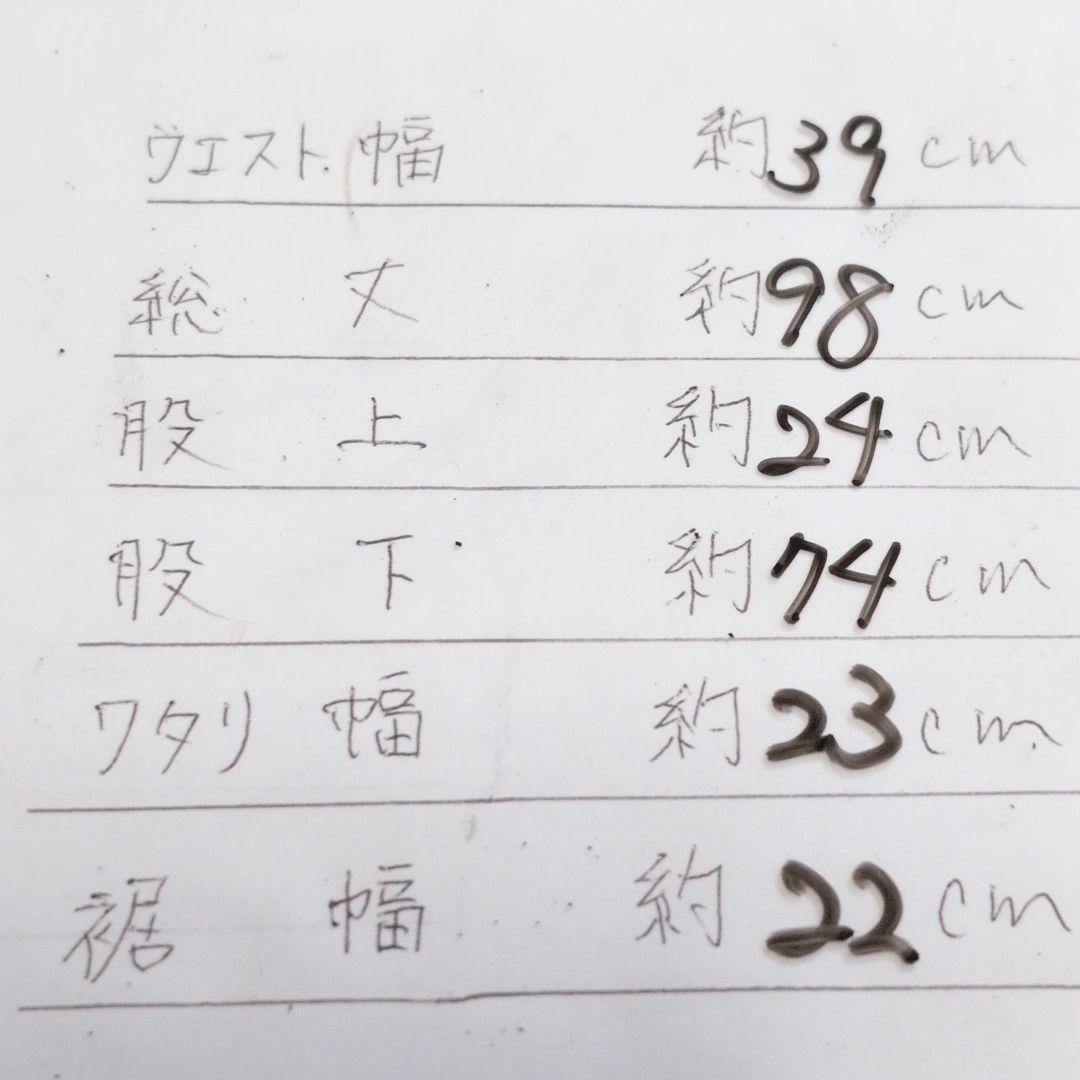 ウエスト幅 約39cm
総丈 約98cm
股上 約24cm
股下 約74cm
ワタリ幅 約23cm
裾幅 約22cm